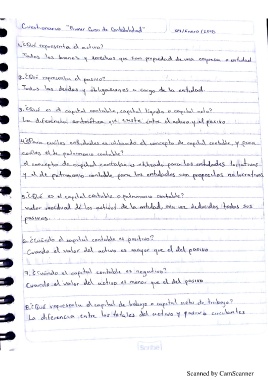 Cuestionario "Primer Curso de Contabilidad"
1.¿Qué representa el activo?
Todos los bienes y derechos que son propiedad de una empresa o entidad
2.¿Qué representa el pasivo?
Todas las deudas y obligaciones a cargo de la entidad.
3.¿Qué es el capital contable, capital líquido o capital neto?
La diferencia aritmética que existe entre el activo y el pasivo
4.¿Para cuáles entidades es utilizado el concepto de capital contable, y para
cuáles el de patrimonio contable?
El concepto de capital contable es utilizado para las entidades lucrativas
y el de patrimonio contable para las entidades con propósitos no lucrativos
5.¿Qué es el capital contable o patrimonio contable?
Valor residual de los activos de la entidad, una vez deducidos todos sus
pasivos.
6.¿Cuándo el capital contable es positivo?
Cuando el valor del activo es mayor que el del pasivo
7.¿Cuándo el capital contable es negativo?
Cuando el valor del activo es menor que el del pasivo
8.¿Qué representa el capital de trabajo o capital neto de trabajo?
La diferencia entre los totales del activo y pasivo circulantes
Scanned by CamScanner